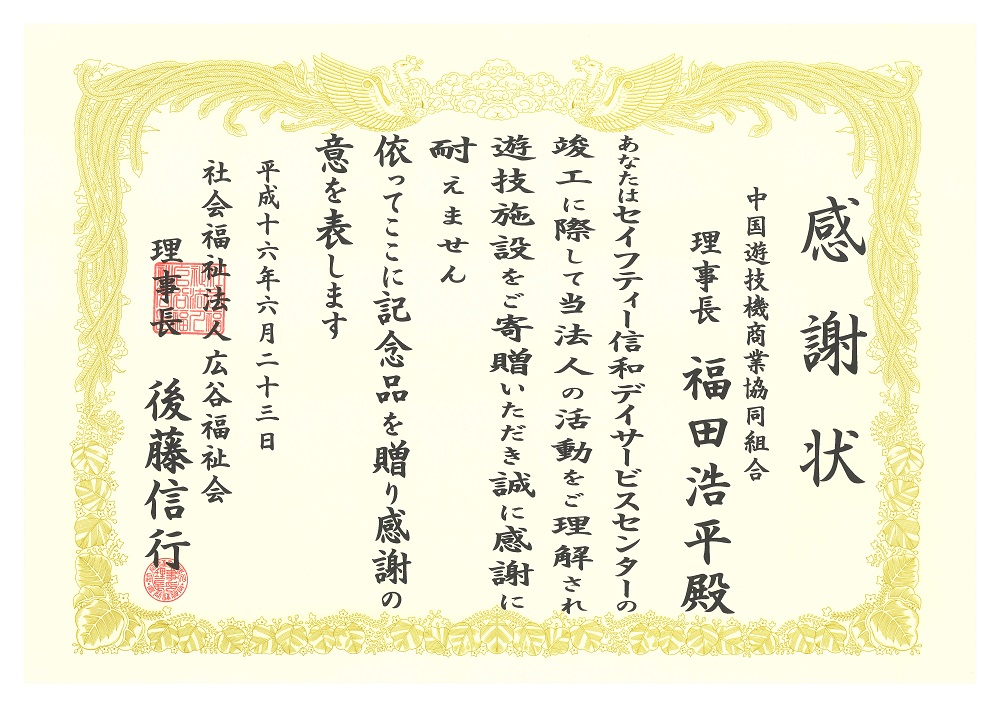 感謝状
中国遊技機商業協同組合
理事長 福田浩平殿
あなたはセイフティー信和デイサービスセンターの
竣工に際して当法人の活動をご理解され
遊技施設をご寄贈いただき誠に感謝に
耐えません
依ってここに記念品を贈り感謝の
意を表します
平成十六年六月二十三日
社会福祉法人広谷福祉会
理事長 後藤信行